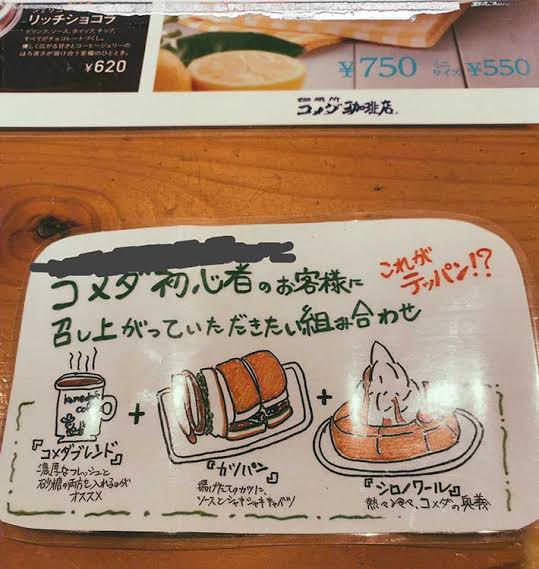 リッチショコラ
ドリンク、ソース、ホイップ、チップ、
すべてがチョコレートづくし。
優しく広がる甘さとコーヒージェリーの
ほろ苦さが溶け合う至福のひととき。
¥620
¥750
ミニサイズ ¥550
コメダ珈琲店
コメダ初心者のお客様に
これがテッパン!?
召し上がっていただきたい組み合わせ
+
+
『コメダブレンド』
濃厚なフレッシュと
砂糖の両方を入れるのが
オススメ
『カツパン』
揚げたてのカツに、
ソースとシャキシャキキャベツ
『シロノワール』
熱々と冷々、コメダの奥義